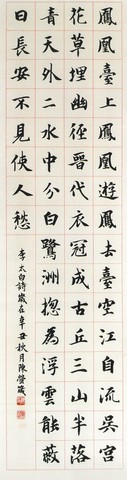 鳳凰臺上鳳凰遊鳳去臺空江自流吳宮
花草埋幽徑晉代衣冠成古丘三山半落
青天外二水中分白鷺洲總為浮雲能蔽
日長安不見使人愁
李太白詩歲在辛丑秋月陳